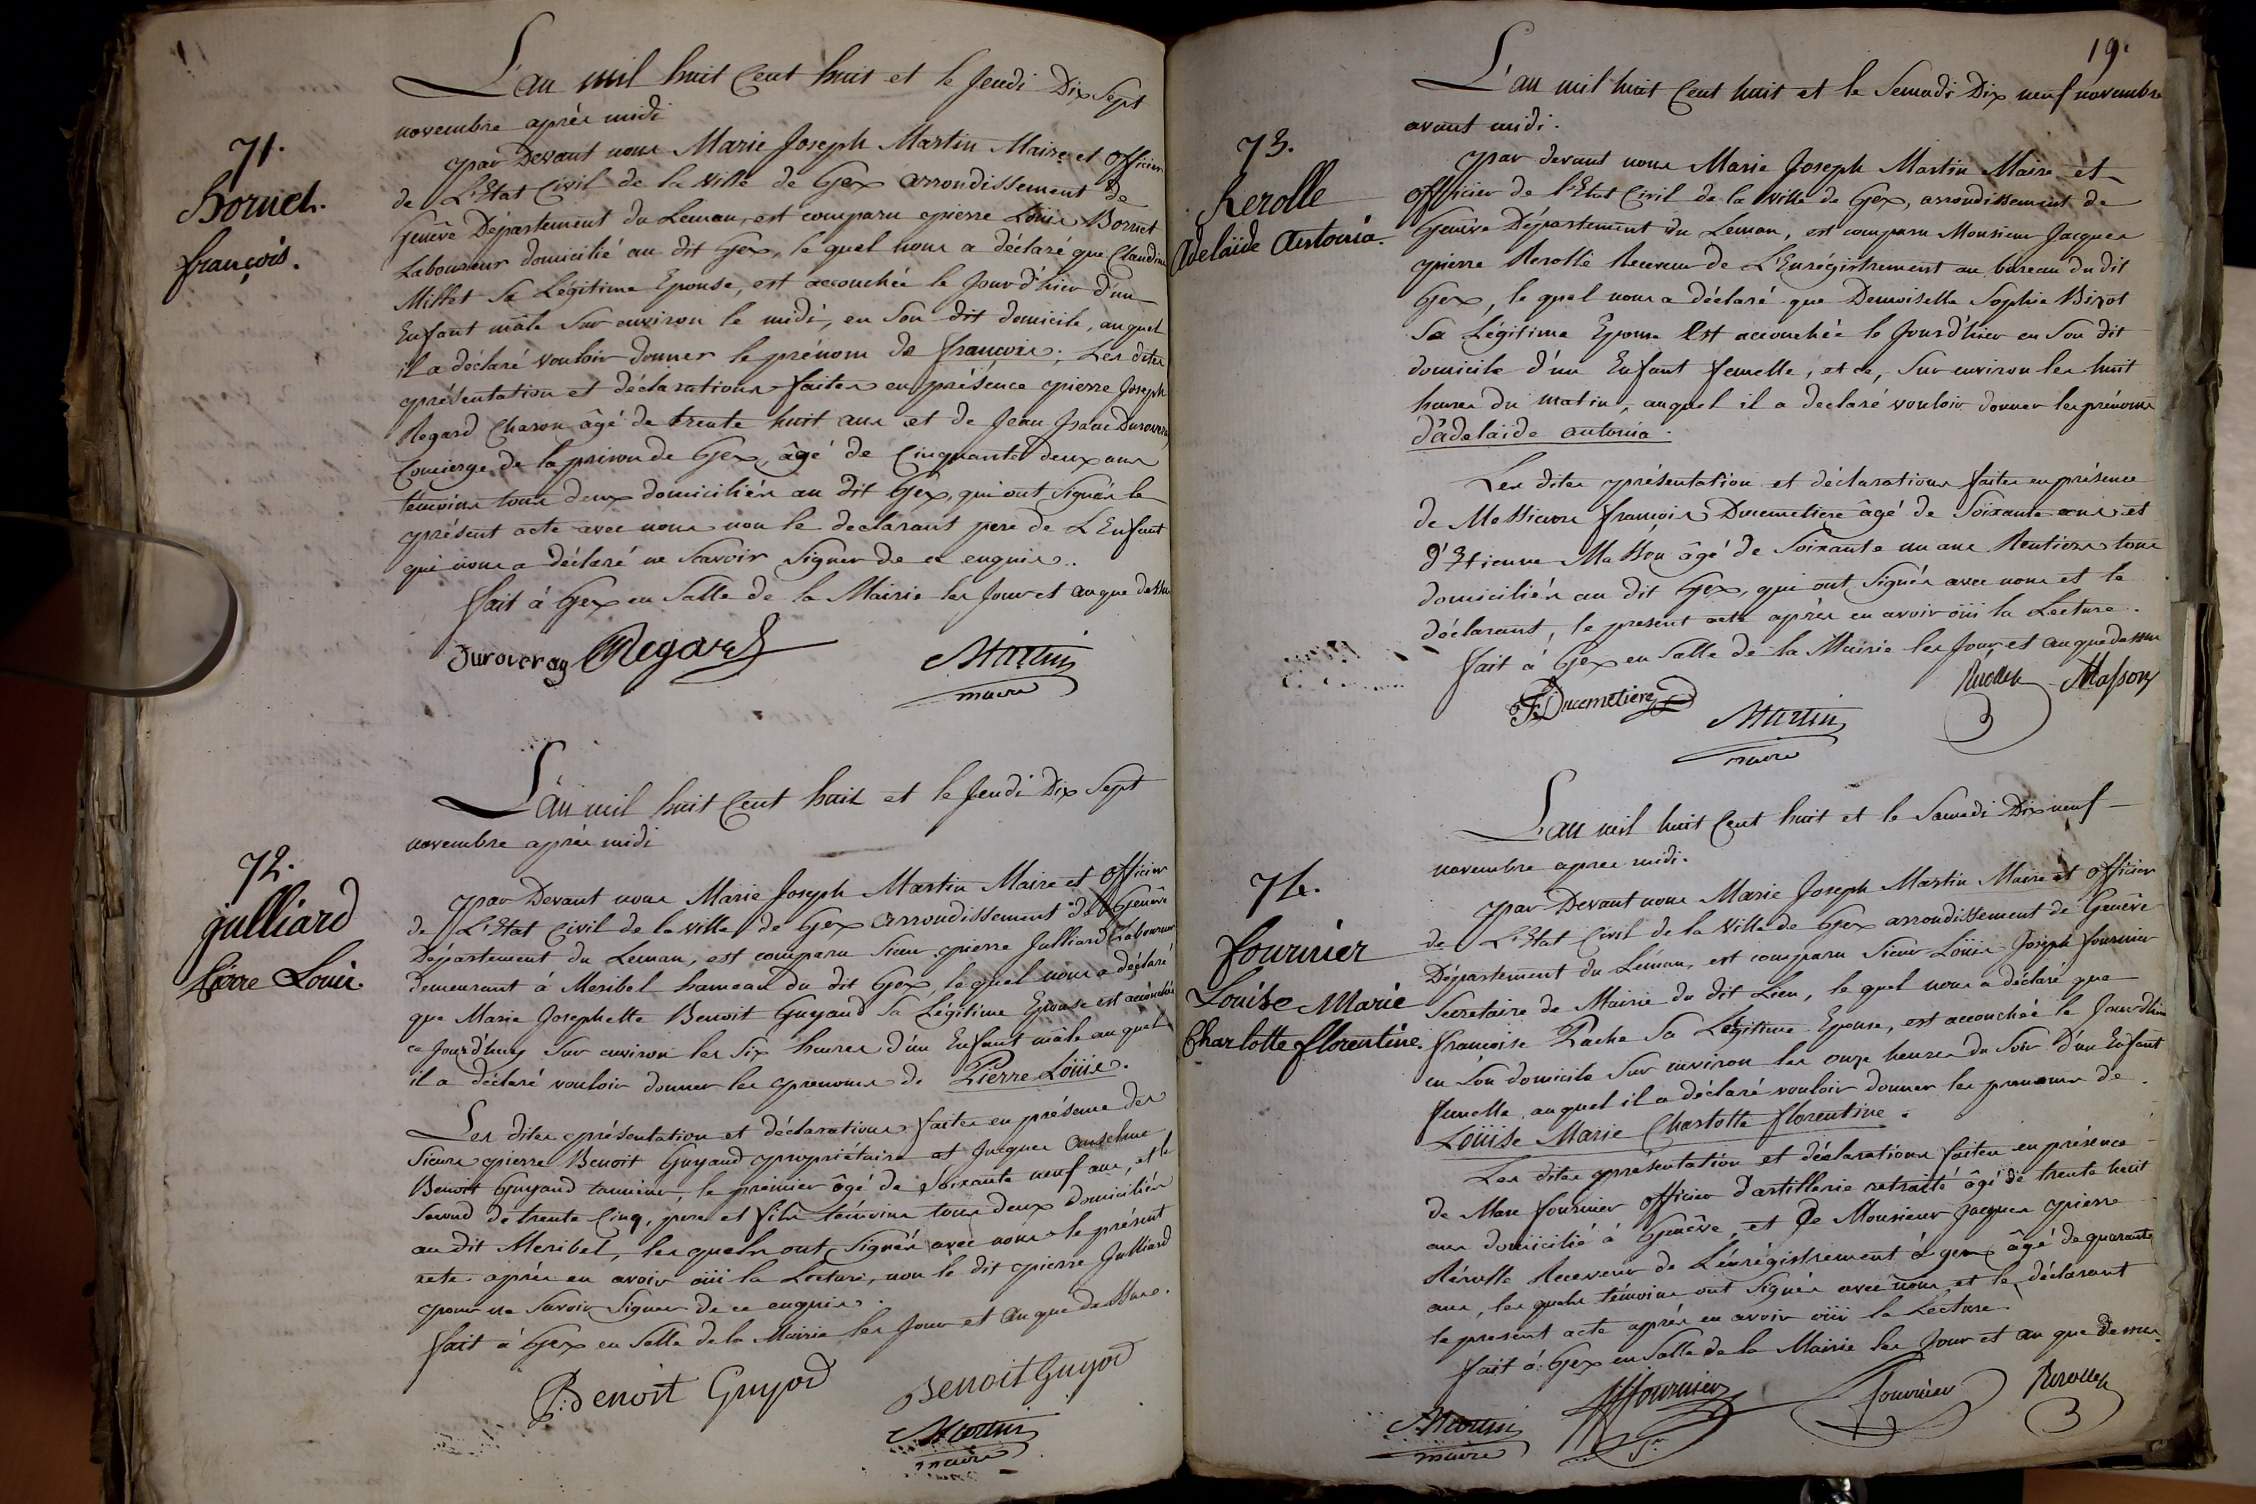 L'an mil huit Cent huit et le Jeudi Dix Sept
novembre après midi
71.
Bornet
françois.
par Devant nous Marie Joseph Martin Maire et officier
de L'Etat Civil de la ville de Gex arrondissement de
Genêve Département du Leman, est comparu pierre Loüis Bornet
Laboureur domicilié au dit Gex, le quel nous a déclaré que Claudine
Millet Sa Légitime Epouse, est accouchée le Jour d'hier d'un
Enfant mâle Sur environ le midi, en Son dit domicile, auquel
il a déclaré vouloir donner le prénom de françois; Les dites
présentation et déclarations faites en présence pierre Joseph
Regard Charon âgé de trente huit ans et de Jean Isaac Duroveray
Concierge de la prison de Gex, âgé de Cinquante deux ans
témoins tous deux domiciliés au dit Gex, qui ont Signés le
présent acte avec nous non le declarant pere de L'Enfant
qui nous a déclaré ne Scavoir Signer de ce enquis..
fait à Gex en Salle de la Mairie les Jour et an que dessus
Duroveray Regard Martin
maire
L'an mil huit Cent huit et le Jeudi Dix Sept
novembre après midi
72.
julliard
Pierre Louis.
par Devant nous Marie Joseph Martin Maire et officier
de L'Etat Civil de la ville de Gex arrondissement de Genêve
Département du Leman, est comparu Sieur pierre Julliard Laboureur
demeurant à Meribel hameau du dit Gex, le quel nous a déclaré
que Marie Josephette Benoit Guyaud Sa Légitime Epouse est accouchée
ce Jourd'huy Sur environ les Six heures d'un Enfant mâle auquel
il a déclaré vouloir donner les prenoms de Pierre Loüis.
Les dites présentation et déclarations faites en présence des
Sieurs pierre Benoit Guyaud propriétaire et Jacques anselme
Benoit Guyaud tanneur, le premier âgé de Soixante neuf ans, et le
Second de trente Cinq, pere et fils témoins tous deux domiciliés
au dit Meribel, les quels ont Signés avec nous le présent
acte après en avoir oüi la Lecture, non le dit pierre Julliard
pour ne Savoir Signer de ce enquis.
fait à Gex en Salle de la Mairie les Jour et an que dessus.
P: Benoit Guyod Benoit Guyod
Martin
maire
19.
L'an mil huit Cent huit et le Samedi Dix neuf novembre
avant midi.
73.
Rerolle
Adelaïde Antonia.
par devant nous Marie Joseph Martin Maire et
officier de l'Etat Civil de la Ville de Gex, arrondissement de
Genève Département du Leman, est comparu Monsieur Jacques
pierre Rerolle Receveur de L'Enrégistrement au bureau du dit
Gex, le quel nous a déclaré que Demoiselle Sophie Bizot
Sa Légitime Epouse Est accouchée le Jourd'hier en Son dit
domicile d'un Enfant femelle, et ce, Sur environ les huit
heures du matin, auquel il a declaré vouloir donner les prénoms
d'adelaïde antonia.
Les dites présentation et déclarations faites en présence
de Messieurs françois Ducimetiere âgé de Soixante ans et
d'Etienne Masson âgé de Soixante un ans Rentiers tous
domiciliés au dit Gex, qui ont Signés avec nous et le
déclarant, le present acte après en avoir oüi la Lecture.
fait à Gex en Salle de la Mairie les Jour et an que dessus
F. Ducimetiere Rerolle Masson
Martin
maire
L'an mil huit Cent huit et le Samedi Dix neuf
novembre apres midi.
74.
fournier
Louise Marie
Charlotte florentine.
par Devant nous Marie Joseph Martin Maire et officier
de L'Etat Civil de la Ville de Gex arrondissement de Genêve
Département du Léman, est comparu Sieur Loüis Joseph fournier
Secretaire de Mairie du dit Lieu, le quel nous a déclaré que
françoise Pache Sa Légitime Epouse, est accouchée le Jourd'hier
en Son domicile Sur environ les onze heures du Soir d'un Enfant
femelle auquel il a déclaré vouloir donner les prenoms de
Loüise Marie Charlotte florentine.
Les dites présentation et déclarations faites en présence
de Marc fournier officier d'artillerie retraité âgé de trente huit
ans domicilié à Genêve, et De Monsieur Jacques pierre
Rérolle Receveur de L'énrégistrement à gex âgé de quarante
ans, les quels témoins ont signés avec nous et le déclarant
le present acte après en avoir oüi la Lecture.
fait à Gex en Salle de la Mairie les Jour et an que dessus.
Martin fournier fournier Rerolle
maire